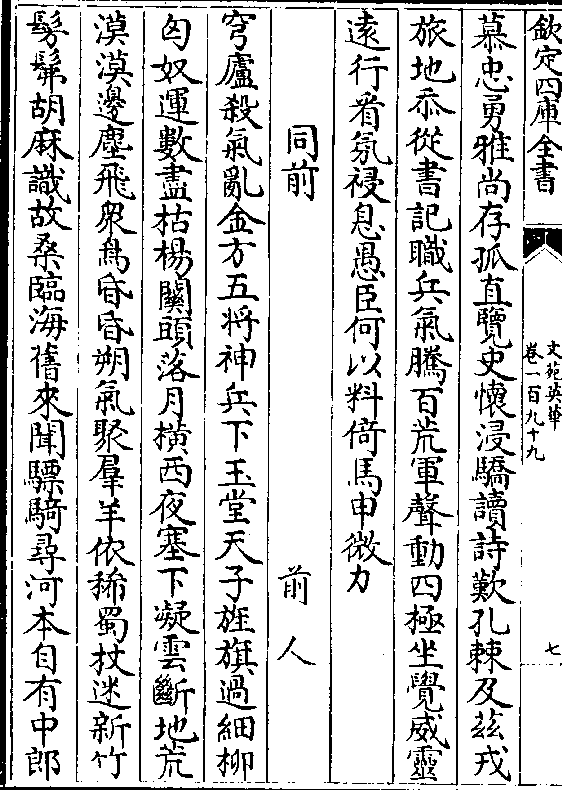 欽定四庫全書
文苑英華
卷一百九十九
七
慕忠勇雅尚存孤直覽史懷浸驕讀詩歎孔棘及茲戎
旅地忝從書記職兵氣騰百荒軍聲動四極坐覺威靈
遠行看氛祲息愚臣何以料倚馬申微力
同前 前人
穹廬殺氣亂金方五將神兵下玉堂天子旌旗過細柳
匈奴運數盡枯楊關頭落月橫西夜塞下凝雲斷地荒
漠漠邊塵飛衆鳥昏昏朔氣聚羣羊依稀蜀杖迷新竹
髣髴胡麻識故桑臨海舊來聞驃騎尋河本自有中郎